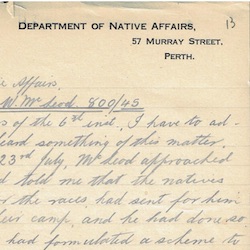 DEPARTMENT OF NATIVE AFFAIRS,
13
57 MURRAY STREET,
PERTH.
Affairs.
W. McLeod. 800/45
of the 6th inst, I have to ad-
heard something of this matter.
23rd July, McLeod approached
told me that the natives
the races had sent for him
camp, and he had done so
had formulated a scheme to